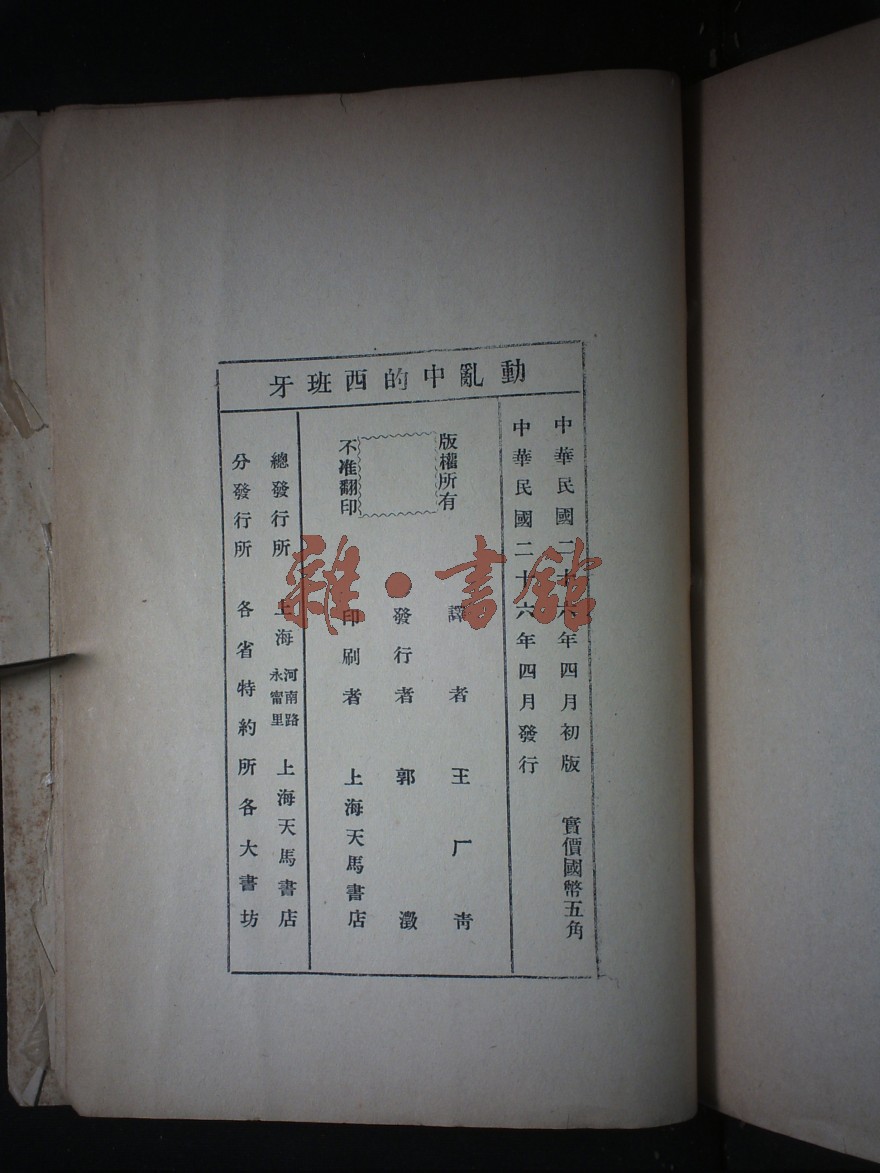 動亂中的西班牙
中華民國二十六年四月初版
實價國幣五角
中華民國二十六年四月發行
版權所有
不准翻印
譯者 王厂青
發行者 郭澂
印刷者 上海天馬書店
總發行所 上海河南路永甯里 上海天馬書店
分發行所 各省特約所各大書坊
雜·書館